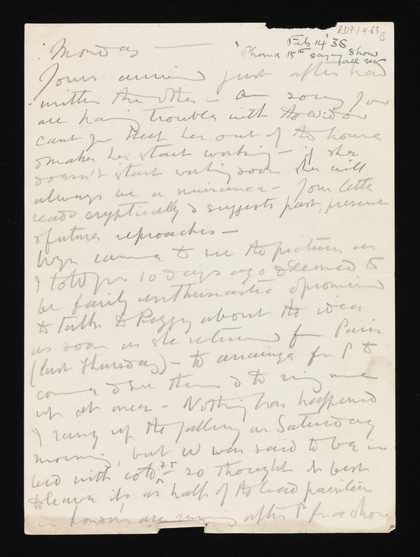 Feb 14 '38
Monday
Phoned 15th saying Show
Yours arrived just after had
written the other - Am sorry you
are having trouble with the widow
cant you Boot her out of the house
& make her start working - if she
doesn't start working soon she will
always be a nuisance - Your letter
reads cryptically & suggests past, present
& future reproaches -
came to see the pictures as
I told you 10 days ago & seemed to
be fairly enthusiastic & promised
to talk to Peggy about the idea
as soon as she returned from Paris
(last Thursday) - to arrange for P to
come & see them & to ring me
up at once - Nothing has happened
I rang up the gallery on Saturday
morning, but W was said to be in
bed with so thought it best
to leave it as half of the lead painters
in London are running after P for a show